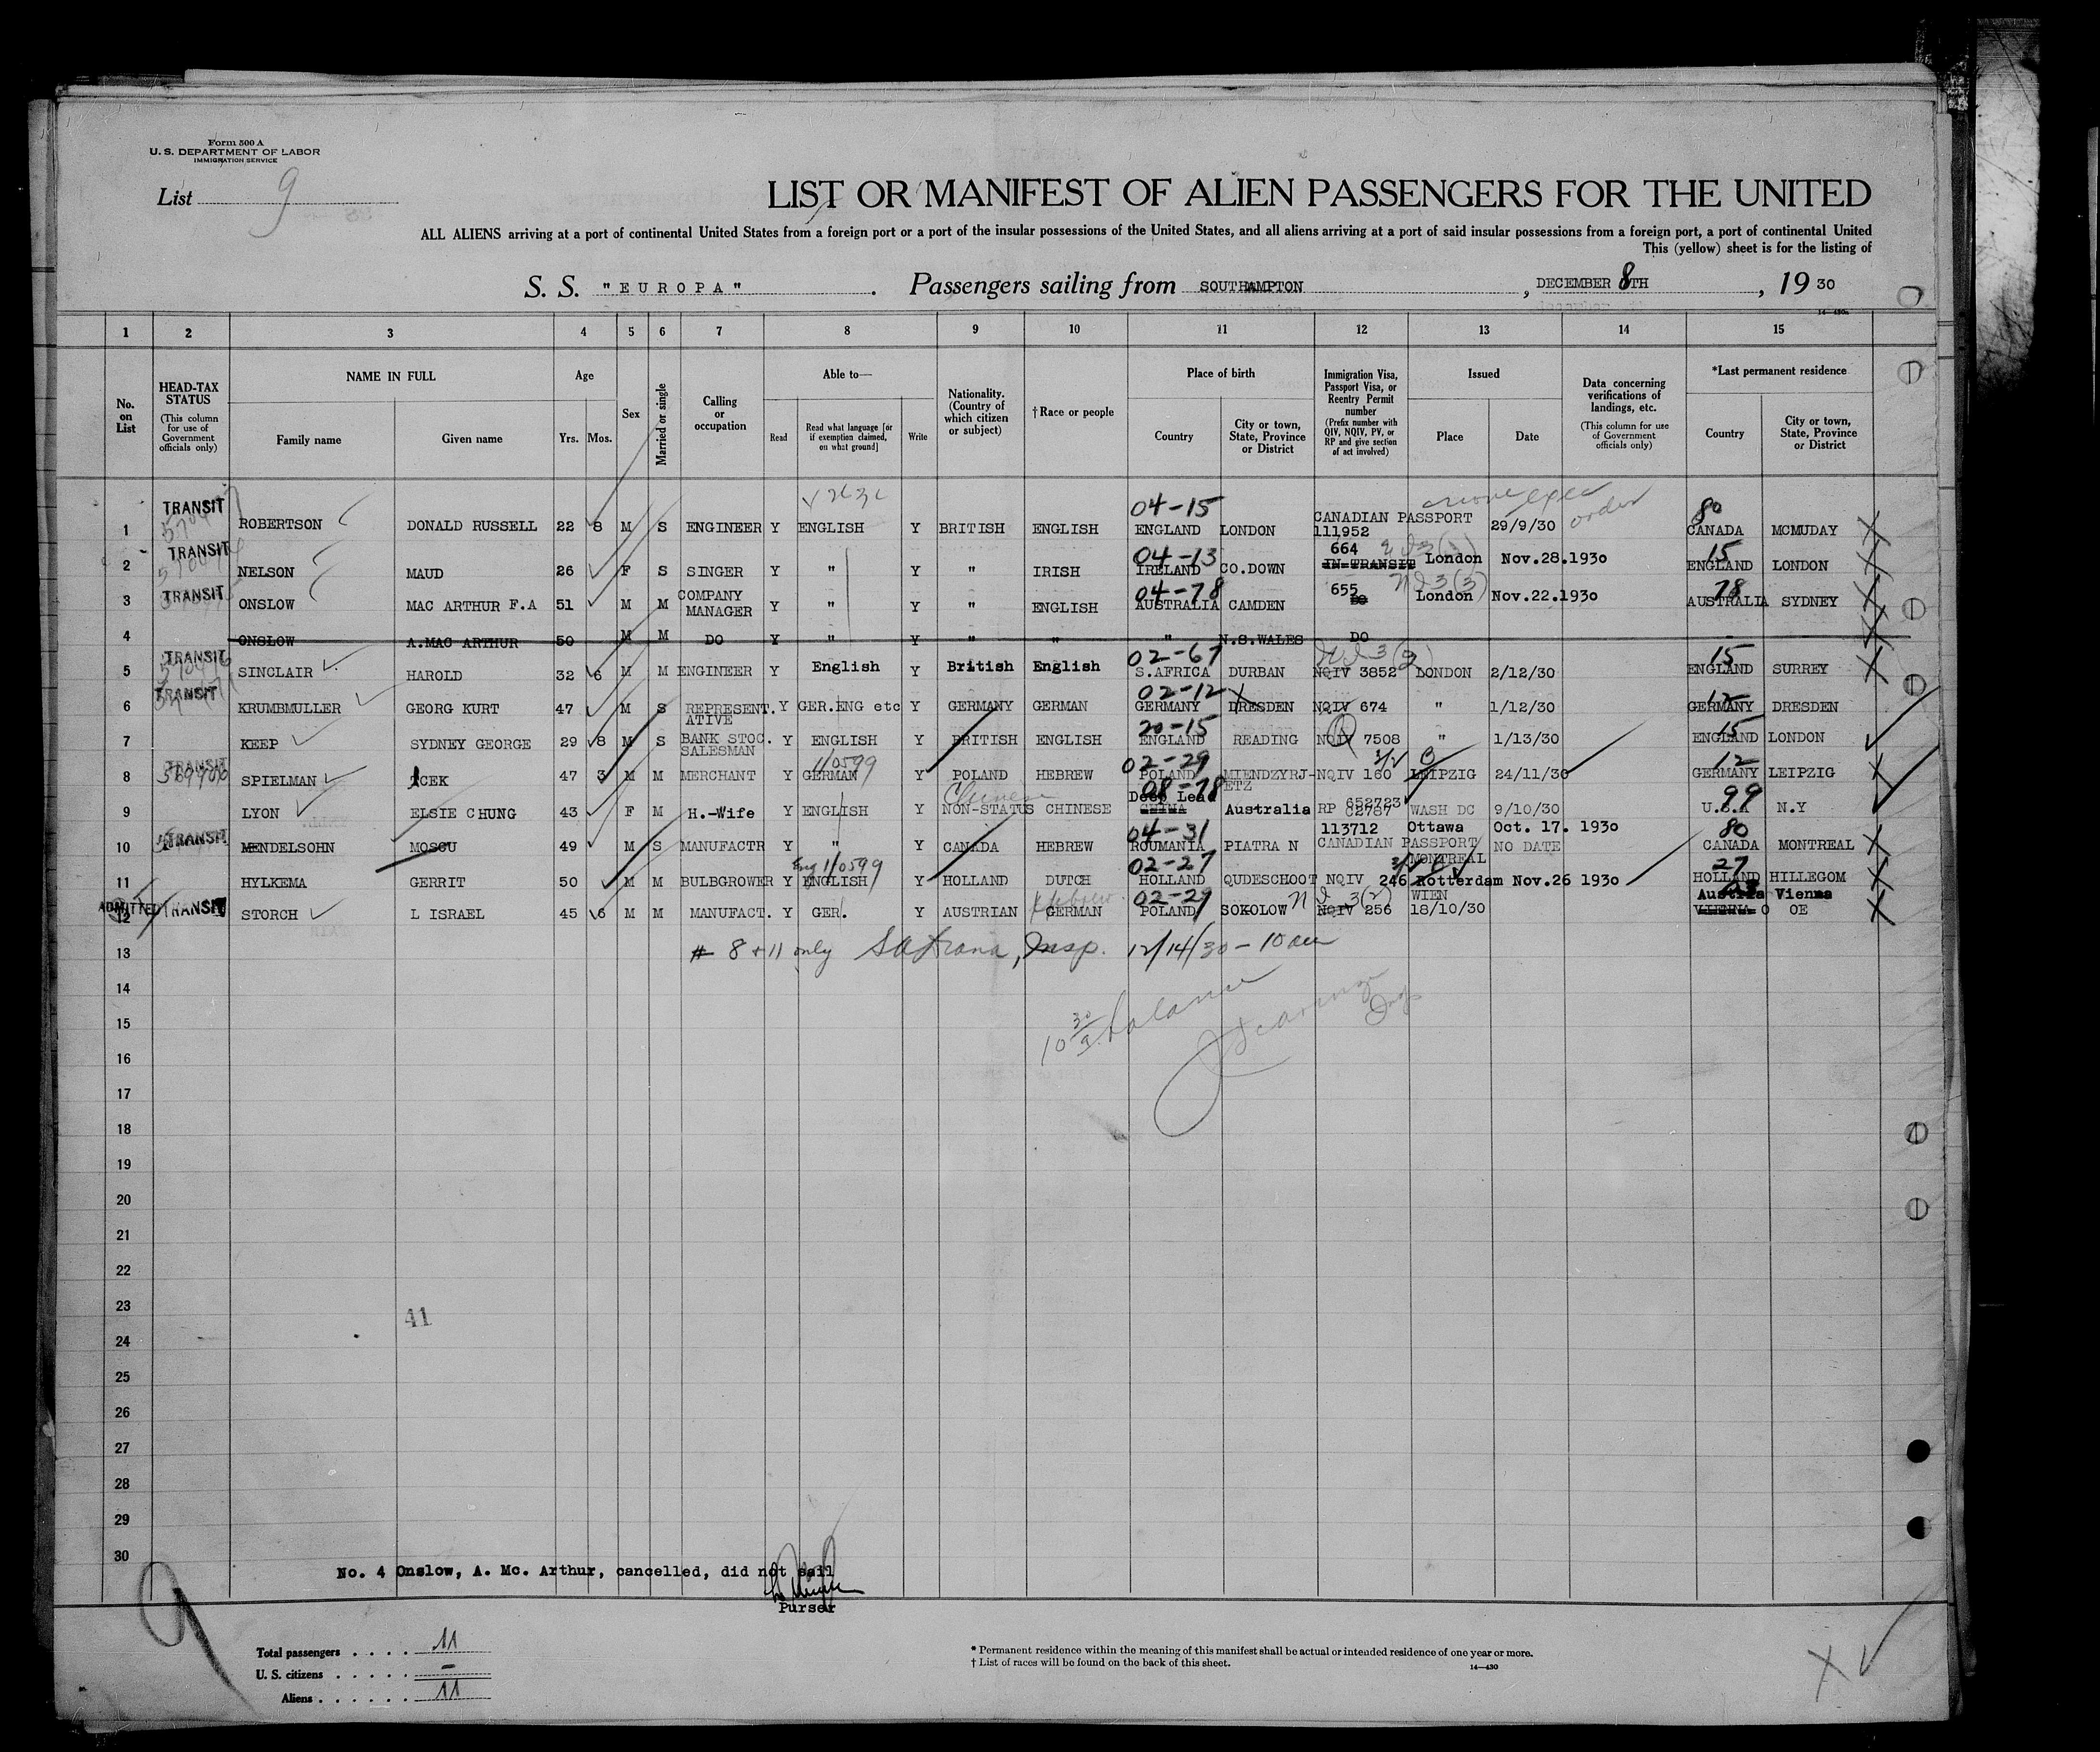 Form 500 A
U. S. DEPARTMENT OF LABOR
IMMIGRATION SERVICE
List 9
LIST OR MANIFEST OF ALIEN PASSENGERS FOR THE UNITED
ALL ALIENS arriving at a port of continental United States from a foreign port or a port of the insular possessions of the United States, and all aliens arriving at a port of said insular possessions from a foreign port, a port of continental United
This (yellow) sheet is for the listing of
S. S. "EUROPA". Passengers sailing from SOUTHAMPTON, DECEMBER 8TH, 1930
14-430a
1 2 3 4 5 6 7 8 9 10 11 12 13 14 15
No. on List
HEAD-TAX STATUS (This column for use of Government officials only)
NAME IN FULL Family name Given name
Age Yrs. Mos.
Sex
Married or single
Calling or occupation
Able to— Read Read what language [or if exemption claimed, on what ground] Write
Nationality. (Country of which citizen or subject)
†Race or people
Place of birth Country City or town, State, Province or District
Immigration Visa, Passport Visa, or Reentry Permit number (Prefix number with QIV, NQIV, PV, or RP and give section of act involved)
Issued Place Date
Data concerning verifications of landings, etc. (This column for use of Government officials only)
*Last permanent residence Country City or town, State, Province or District
TRANSIT 04-15 80
1 ROBERTSON DONALD RUSSELL 22 8 M S ENGINEER Y ENGLISH Y BRITISH ENGLISH ENGLAND LONDON CANADIAN PASSPORT 111952 29/9/30 order CANADA MCMUDAY
TRANSIT 04-13 664 15
2 NELSON MAUD 26 F S SINGER Y " Y " IRISH IRELAND CO.DOWN IN TRANSIT London Nov.28.1930 ENGLAND LONDON
TRANSIT 04-78 655 78
3 ONSLOW MAC ARTHUR F.A 51 M M COMPANY MANAGER Y " Y " ENGLISH AUSTRALIA CAMDEN DO London Nov.22.1930 AUSTRALIA SYDNEY
4 ONSLOW A.MAC ARTHUR 50 M M DO Y " Y " " " N.S.WALES DO
TRANSIT 02-67 15
5 SINCLAIR HAROLD 32 6 M M ENGINEER Y English Y British English S.AFRICA DURBAN NQIV 3852 LONDON 2/12/30 ENGLAND SURREY
TRANSIT 02-12 12
6 KRUMBMULLER GEORG KURT 47 M S REPRESENT.ATIVE Y GER.ENG etc Y GERMANY GERMAN GERMANY DRESDEN NQIV 674 " 1/12/30 GERMANY DRESDEN
20-15 15
7 KEEP SYDNEY GEORGE 29 8 M S BANK STOC. SALESMAN Y ENGLISH Y BRITISH ENGLISH ENGLAND READING NQIV 7508 " 1/13/30 ENGLAND LONDON
TRANSIT 1/0599 02-29 12
8 SPIELMAN ICEK 47 3 M M MERCHANT Y GERMAN Y POLAND HEBREW POLAND MIENDZYRJ-ETZ NQIV 160 LEIPZIG 24/11/30 GERMANY LEIPZIG
Chinese 08-78 Deep Lead 652723 99
9 LYON ELSIE CHUNG 43 F M H.-Wife Y ENGLISH Y NON-STATUS CHINESE CHINA Australia RP C2787 WASH DC 9/10/30 U.S.A N.Y
TRANSIT 04-31 113712 Ottawa Oct. 17. 1930 80
10 MENDELSOHN MOSCU 49 M S MANUFACTR Y " Y CANADA HEBREW ROUMANIA PIATRA N CANADIAN PASSPORT MONTREAL NO DATE CANADA MONTREAL
Eng 1/0599 02-27 27
11 HYLKEMA GERRIT 50 M M BULBGROWER Y ENGLISH Y HOLLAND DUTCH HOLLAND QUDESCHOOT NQIV 246 Rotterdam Nov.26 1930 HOLLAND HILLEGOM
ADMITTED TRANSIT Hebrew 02-29 WIEN Austria Vienna
12 STORCH L ISRAEL 45 6 M M MANUFACT. Y GER. Y AUSTRIAN GERMAN POLAND SOKOLOW NQIV 256 18/10/30 VIENNA O OE
13 # 8 + 11 only Insp. 12/14/30 - 10 am
14
15 10 30/a balance
16
17
18
19
20
21
22
23 41
24
25
26
27
28
29
30
No. 4 Onslow, A. Mc. Arthur, cancelled, did not sail
Purser
9
Total passengers . . . . 11
U. S. citizens . . . . . -
Aliens . . . . . . 11
* Permanent residence within the meaning of this manifest shall be actual or intended residence of one year or more.
† List of races will be found on the back of this sheet.
14-430